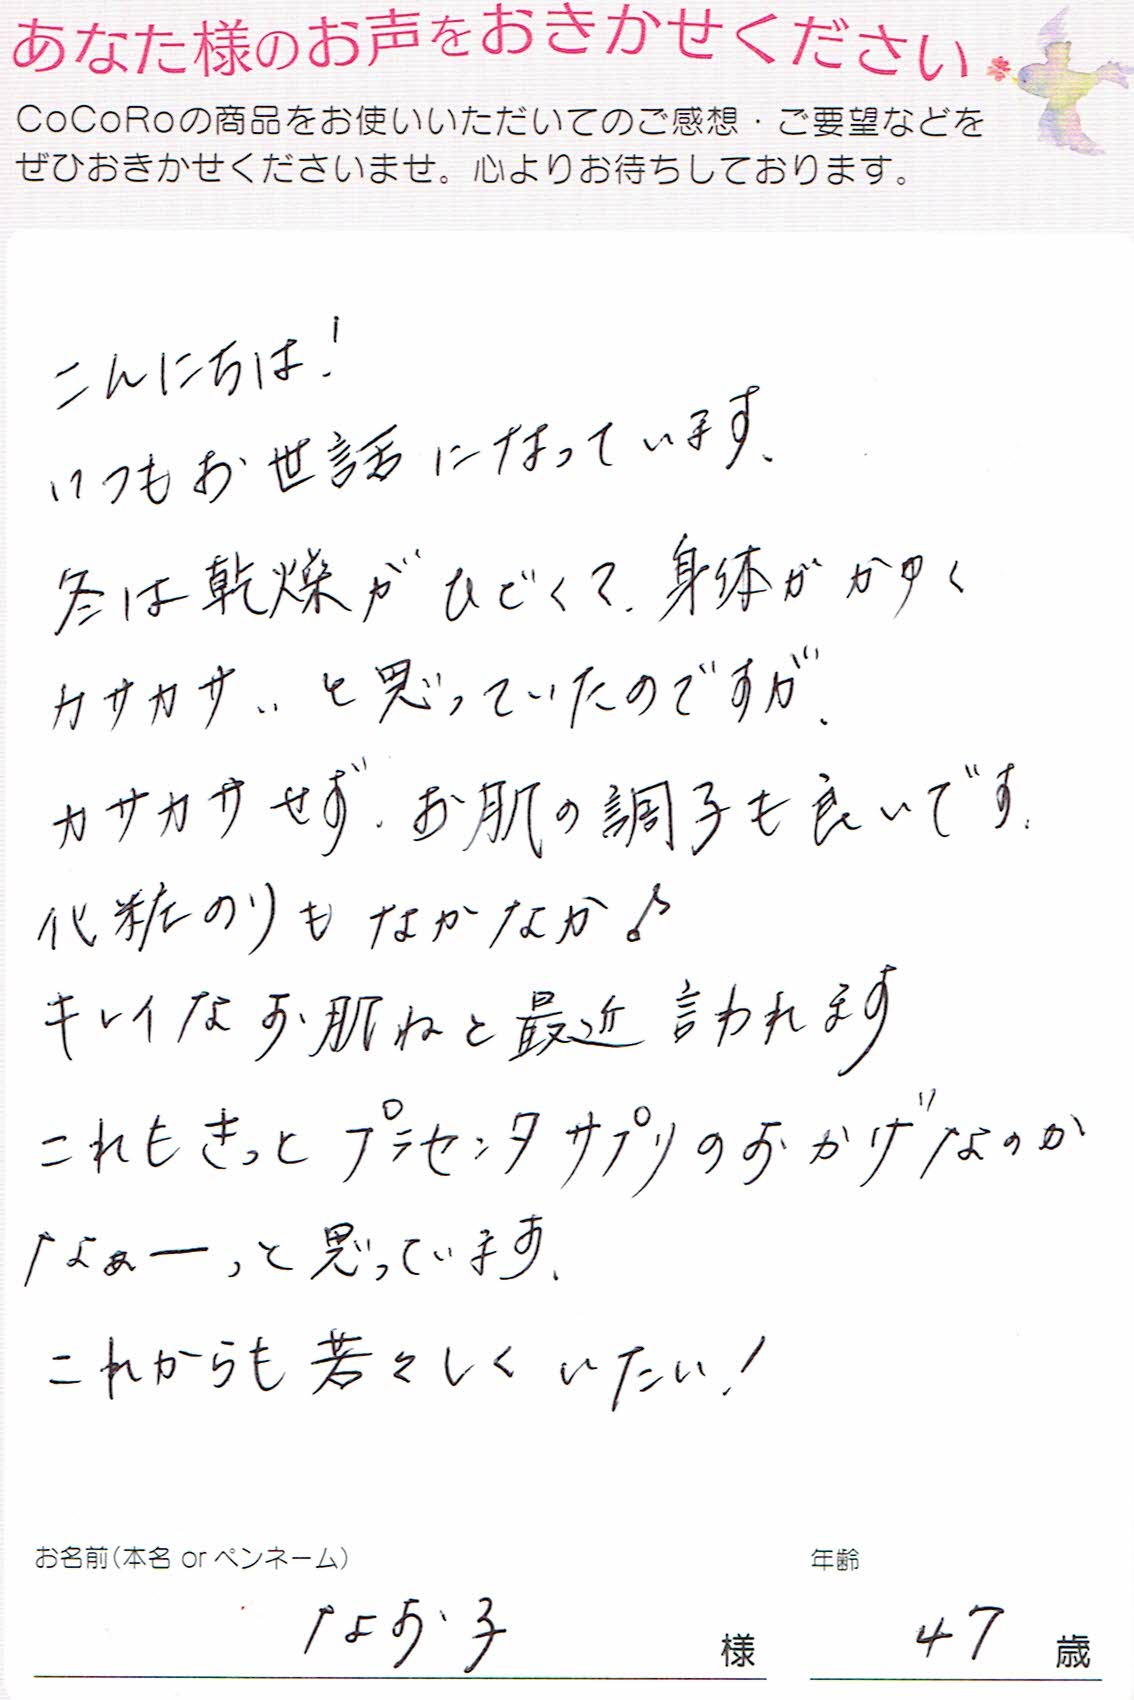 あなた様のお声をおきかせください
CoCoRoの商品をお使いいただいてのご感想・ご要望などを
ぜひおきかせくださいませ。心よりお待ちしております。
こんにちは!
いつもお世話になっています、
冬は乾燥がひどくて、身体がかゆく
カサカサ‥と思っていたのですが、
カサカサせず、お肌の調子も良いです、
化粧のりもなかなか♪
キレイなお肌ねと最近言われます
これもきっとプラセンタサプリのおかげなのか
なぁーっと思っています、
これからも若々しくいたい!
お名前(本名 or ペンネーム) 年齢
なお子 様 47 歳